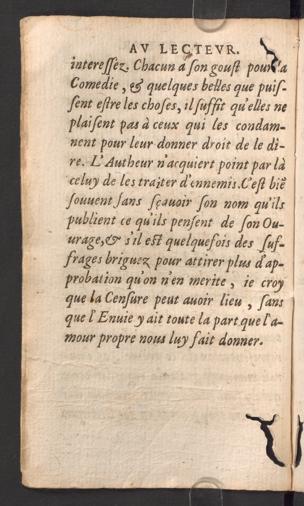 AV LECTEVR.
interessez. Chacun a son goust pour la
Comedie, & quelques belles que puis-
sent estre les choses, il suffit qu'elles ne
plaisent pas à ceux qui les condam-
nent pour leur donner droit de le di-
re. L'Autheur n'acquiert point par là
celuy de les traiter d'ennemis. C'est biẽ
souuent sans sçauoir son nom qu'ils
publient ce qu'ils pensent de son Ou-
urage, & s'il est quelquefois des suf-
frages briguez pour attirer plus d'ap-
probation qu'on n'en merite, ie croy
que la Censure peut auoir lieu, sans
que l'Enuie y ait toute la part que l'a-
mour propre nous luy fait donner.